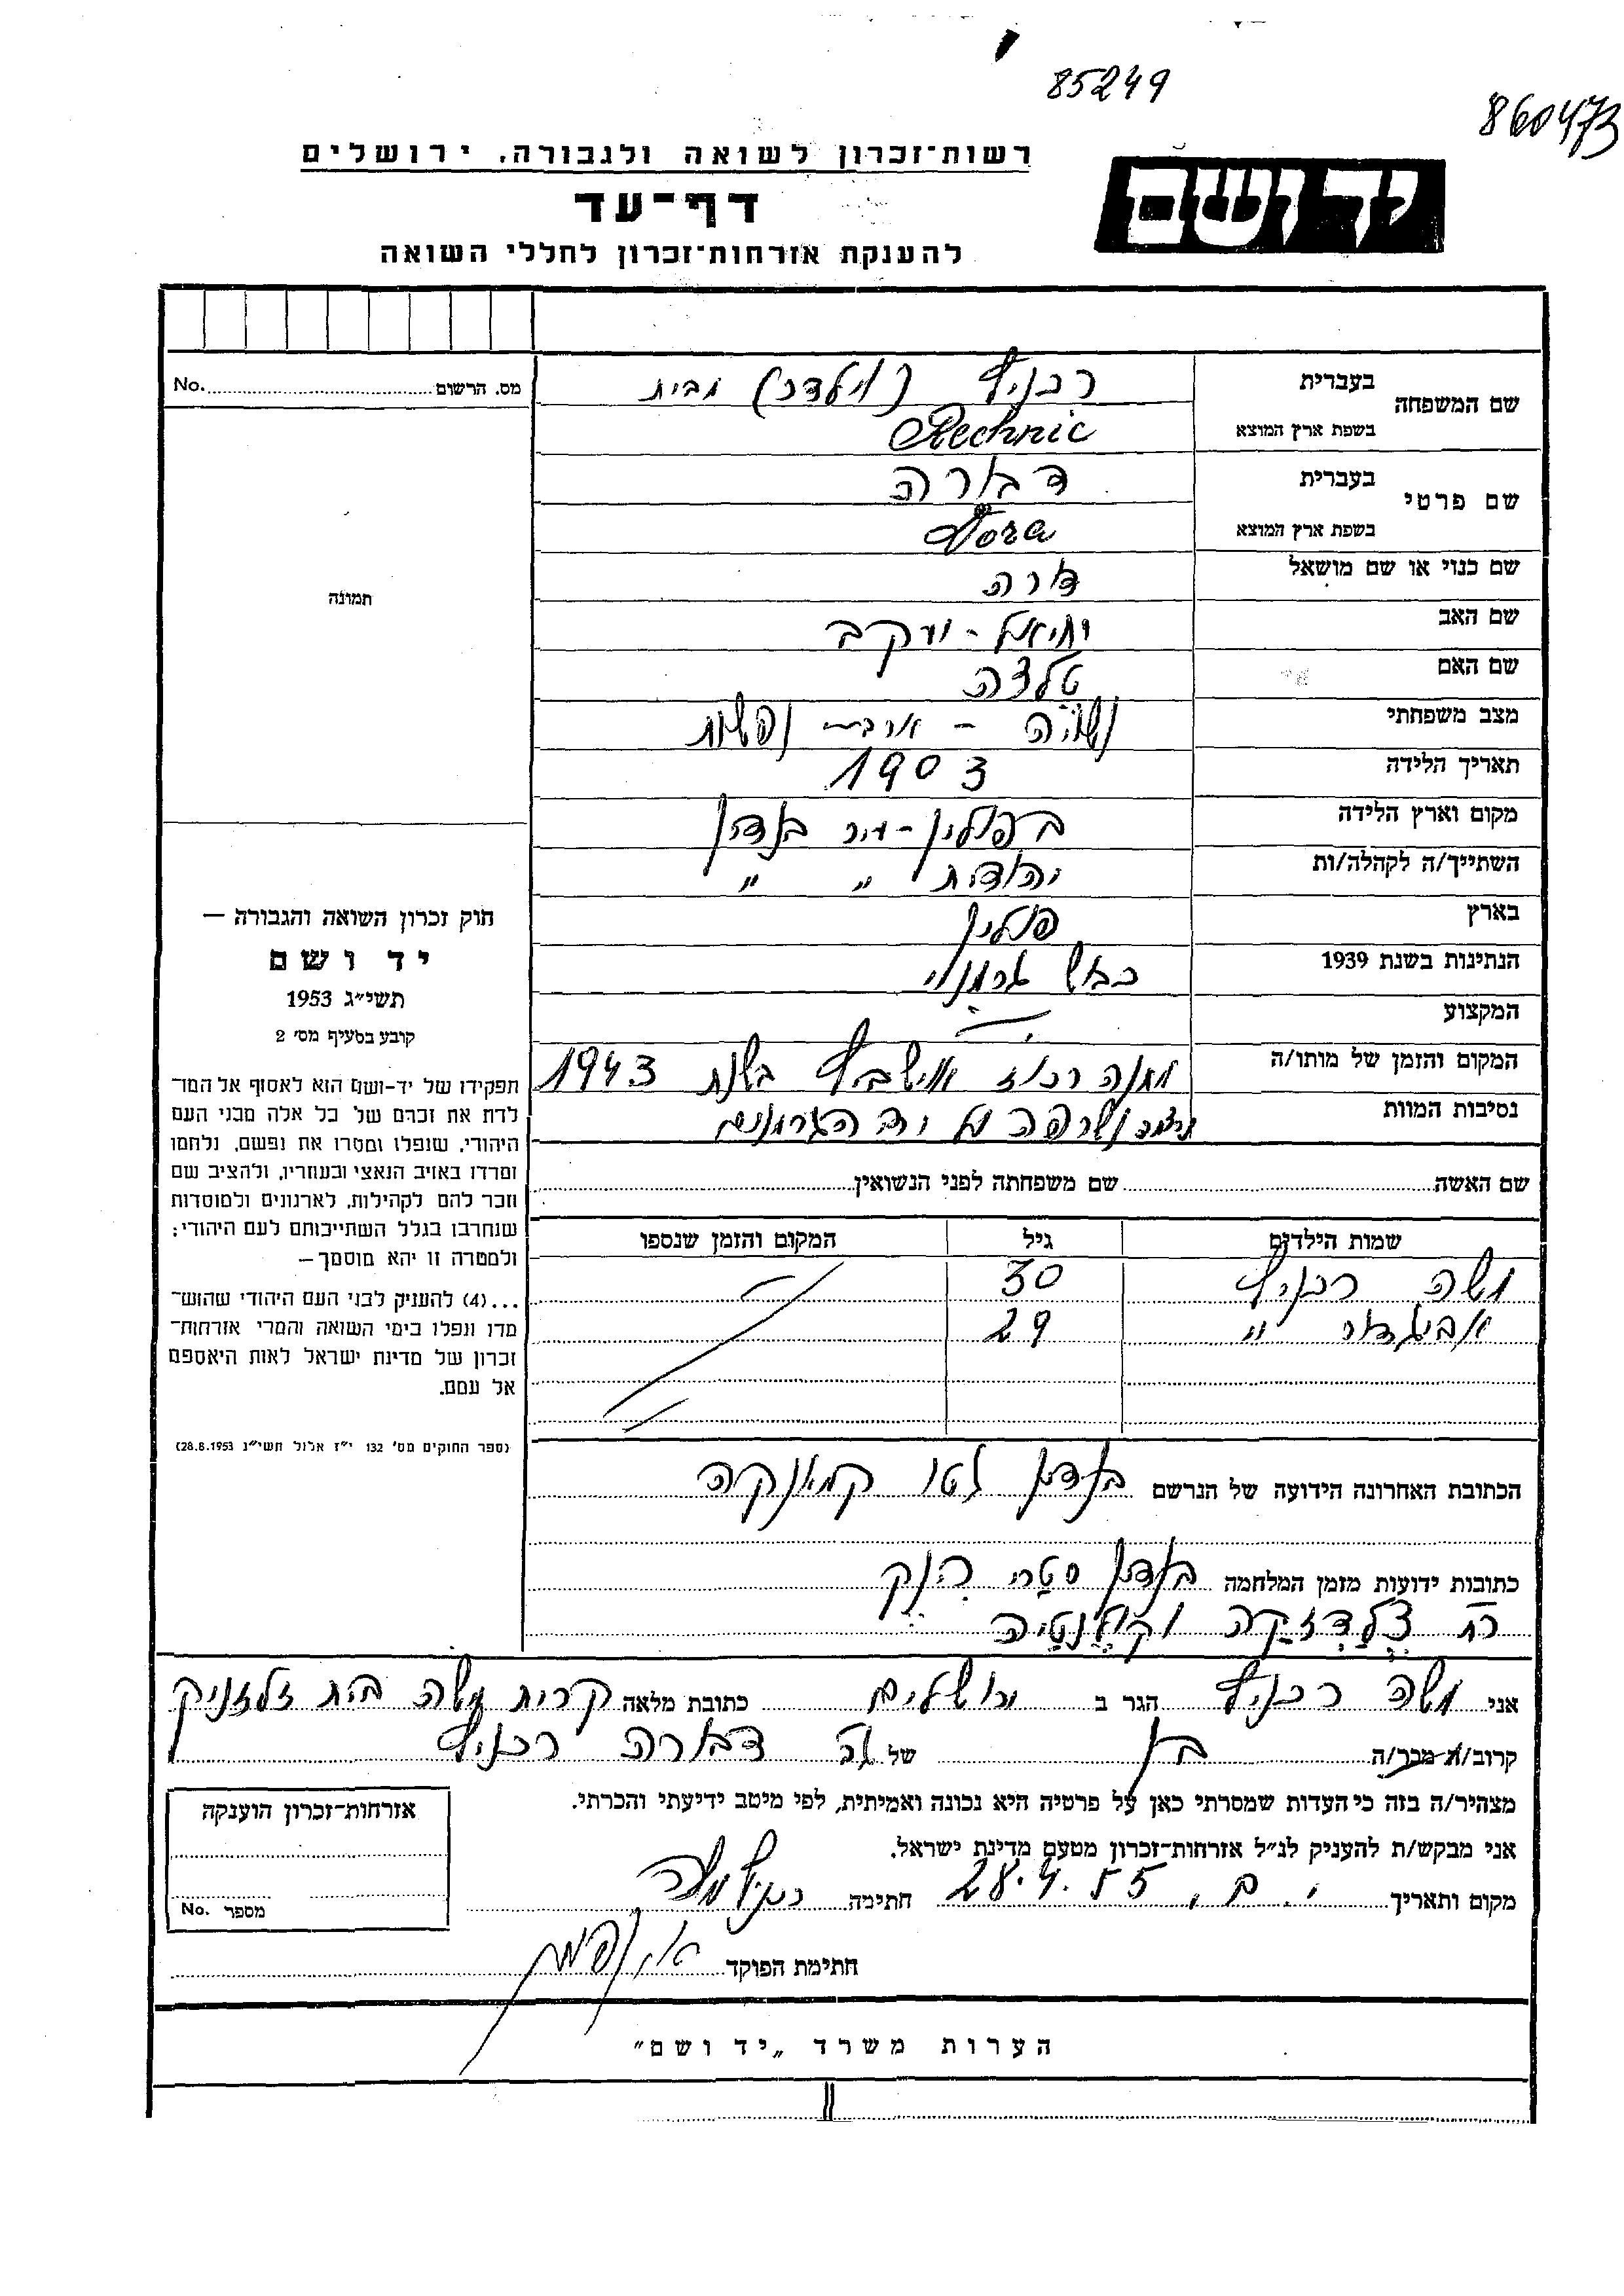 85249
860473
רשות־זכרון לשואה ולגבורה, ירושלים
יד ושם
דף־עד
להענקת אזרחות־זכרון לחללי השואה
מס. הרשום No.
תמונה
שם המשפחה בעברית רכניץ (וילדר) מבית
בשפת ארץ המוצא Rechnic
שם פרטי בעברית דבורה
בשפת ארץ המוצא Dora
שם כנוי או שם מושאל דורה
שם האב יחיאל - יעקב
שם האם
מצב משפחתי נשואה - נפשות
תאריך הלידה 1903
מקום וארץ הלידה בפולין - עיר בנדין
השתייך/ה לקהלה/ות יהודית " "
בארץ פולין
הנתינות בשנת 1939 כבוש גרמני
המקצוע
המקום והזמן של מותו/ה מחנה רכוז אושביץ בשנת 1943
נסיבות המוות ונשרפה על ידי הגרמנים
שם האשה שם משפחתה לפני הנשואין
שמות הילדים גיל המקום והזמן שנספו
משה רכניץ 30
אביגדור " 29
חוק זכרון השואה והגבורה —
יד ושם
תשי״ג 1953
קובע בסעיף מס׳ 2
תפקידו של יד-ושם הוא לאסוף אל המו־
לדת את זכרם של כל אלה מבני העם
היהודי, שנפלו ומסרו את נפשם, נלחמו
ומרדו באויב הנאצי ובעוזריו, ולהציב שם
וזכר להם לקהילות, לארגונים ולמוסדות
שנחרבו בגלל השתייכותם לעם היהודי;
ולמטרה זו יהא מוסמך—
...(4) להעניק לבני העם היהודי שהוש־
מדו ונפלו בימי השואה והמרי אזרחות־
זכרון של מדינת ישראל לאות היאספם
אל עמם.
(ספר החוקים מס׳ 132 י״ז אלול תשי״ג 28.8.1953)
הכתובת האחרונה הידועה של הנרשם בנדין גטו קמאנקה
כתובות ידועות מזמן המלחמה בנדין
אני משה רכניץ הגר ב ירושלים כתובת מלאה קרית משה בית
קרוב/ת מכר/ה בן של דבורה רכניץ
מצהיר/ה בזה כי העדות שמסרתי כאן על פרטיה היא נכונה ואמיתית, לפי מיטב ידיעתי והכרתי.
אני מבקש/ת להעניק לנ״ל אזרחות־זכרון מטעם מדינת ישראל.
מקום ותאריך 28.4.55 חתימה רכניץ משה
חתימת הפוקד
אזרחות־זכרון הוענקה
מספר No.
הערות משרד „יד ושם״